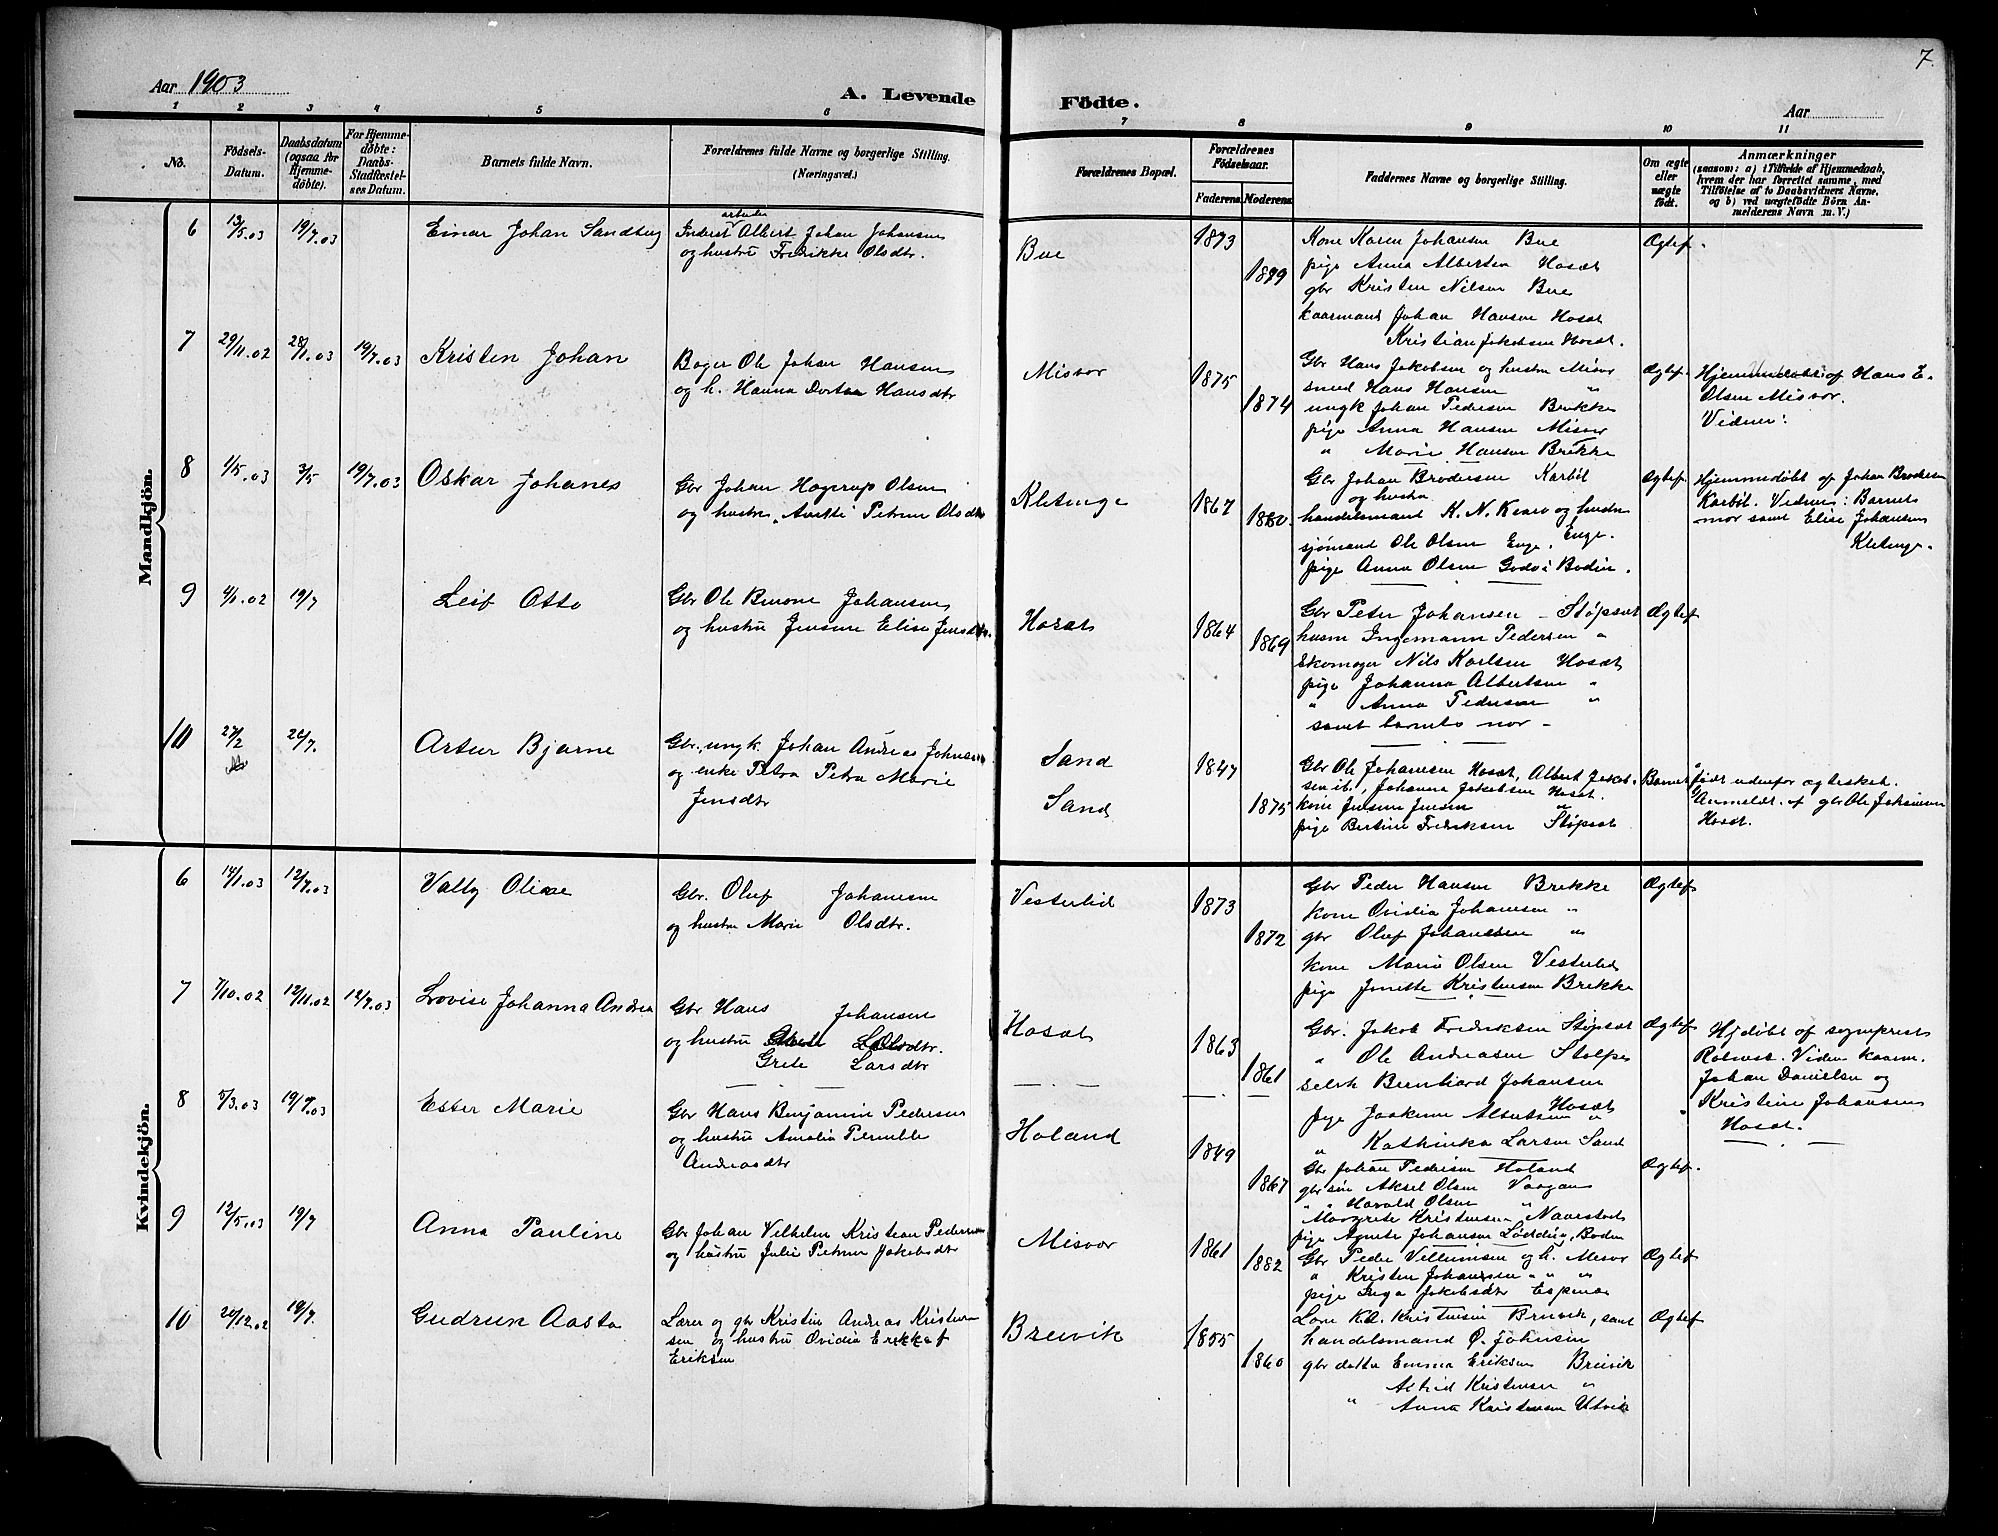 7.
Aar 1903
A. Levende Födte.
Aar
1 2 3 4 5 6 7 8 9 10 11
No.
Födsels-Datum.
Daabsdatum (ogsaa for Hjemmedöbte).
For Hjemmedöbte: Daabs-Stadfæstelses Datum.
Barnets fulde Navn.
Forældrenes fulde Navne og borgerlige Stilling.
(Næringsvei.)
Forældrenes Bopæl.
Forældrenes Födselsaar.
Faderens Moderens
Faddernes Navne og borgerlige Stilling.
Om ægte eller uægte födt.
Anmærkninger
(saasom: a) i Tilfælde af Hjemmedaab,
hvem der har forrettet samme, med
Tilföielse af to Daabsvidners Navne,
og b) ved uægtefödte Börn An-
melderens Navn m. V.)
Mandkjön.
6 13/5.03 19/7.03 Einar Johan Sandberg
Inderst arbeider Albert Johan Johansen
og hustru Fredrikke Olsdtr.
Bue 1873
Kone Karen Johansen Bue
pige Anna Albertsen Hosæt
gbr Kristen Nilsen Bue
kaarmand Johan Hansen Hosæt
Kristian Jakobsen Hosæt.
Ægtef.
7 29/11.02 28/1.03 19/7.03 Kristen Johan
Bager Ole Johan Hansen
og h. Hanna Dortea Hansdtr
Misvær 1875 1874
Gbr Hans Jakobsen og hustru Misvær
smed Hans Hansen "
ungk Johan Pedersen Brekke
pige Anna Hansen Misvær
" Marie Hansen Brekke
Ægtef.
Hjemmedøbt af Hans E.
Olsen Misvær.
Vidner:
8 1/5.03 3/5 19/7.03 Oskar Johanes
Gbr Johan Hagerup Olsen
og hustru Petrine Olsdtr
Kletenge 1867 1880
Gbr Johan Brodersen Karbøl
og hustru
handelsmand K. N. og hustru
sjømand Ole Olsen Enge, Enge.
pige Anna Olsen Godø i Bodin.
Ægtef.
Hjemmedøbt af Johan Brodersen
Karbøl. Vidner: Barnets
mor samt Elise Johansen
Kletenge.
9 19/7 Leif Otto
Gbr Ole Johansen
og hustru Jensine Elise Jensdtr.
Hosæt 1864 1869
Gbr Peter Johansen - Støpset
husm Ingemann Pedersen "
Skomager Nils Karlsen Hosæt
pige Johanna Albertsen "
" Anna Pedersen "
samt barnets mor -
Ægtef
10 27/2 26/7. Artur Bjarne
Gbr. ungk. Johan Andreas Johnsen
og enke Petra Petra Marie
Jensdtr
Sand
Sand
1847 1875
Gbr Ole Johansen Hosæt, Albert Jakob-
sen ib., Johanna Jakobsen Hosæt.
kone Jensine Jensen "
pige Bertine Fredriksen Støpset
Barnet født udenfor ægtesket.
Anmeldt af gbr Ole Johansen
Hosæt.
Kvindekjön.
6 14/1.03 12/7.03 Valby Oline
Gbr. Oluf Johansen
og hustru Marie Olsdtr.
Vesterlid 1873 1872
Gbr Peder Hansen Brekke
kone Ovidia Johansen "
gbr Oluf Johansen "
kone Marie Olsen Vesterlid
pige Jenette Kristensen Brekke
Ægtef
7 7/10.02 12/11.02 12/7.03 Lovise Johanna Andrea
Gbr Hans Johansen
og hustru
Grete Larsdtr
Hosæt 1863 1861
Gbr. Jakob Fredriksen Støpset
" Ole Andreasen Stolpe
selvh Bernhard Johansen
Hosæt
pige Jaakome Albertsen "
" Kathinka Larsen Sand
Ægtef
Hjdøbt af sogneprest
Rolvest. Vidn kaarm.
Johan Danielsen og
Kristine Johansen
Hosæt.
8 5/3.03 19/7.03 Ester Marie
Gbr Hans Benjamin Pedersen
og hustru Amalia Pernille
Andreasdtr
Holand 1849 1867
Gbr Johan Pedersen Holand
gbr søn Aksel Olsen Vaagan
" " Harald Olsen "
Margrete Kristensen Naurstad
pige Agnete Johansen Løddin, Bodin
Ægtef.
9 12/5.03 19/7 Anna Pauline
Gbr Johan Vilhelm Kristian Pedersen
og hustru Julie Petrine Jakobsdtr
Misvær 1861 1882
Gbr Peder Vellumsen og h. Mesvær
" Kristen Johansen " " "
pige Inga Jakobsdtr Espenes
Ægtef
10 20/12.02 19/7 Gudrun Aasta
Lærer og gbr Kristen Andreas Kristen-
sen og hustru Ovidia Erikka f
Eriksen
Breivik 1855 1860
Lær K.A. Kristensen Breivik, samt
handelsmand O. Johnsen
gbr datter Emma Eriksen Breivik
Astrid Kristensen "
" Anna Kristensen Utvik
Ægtef